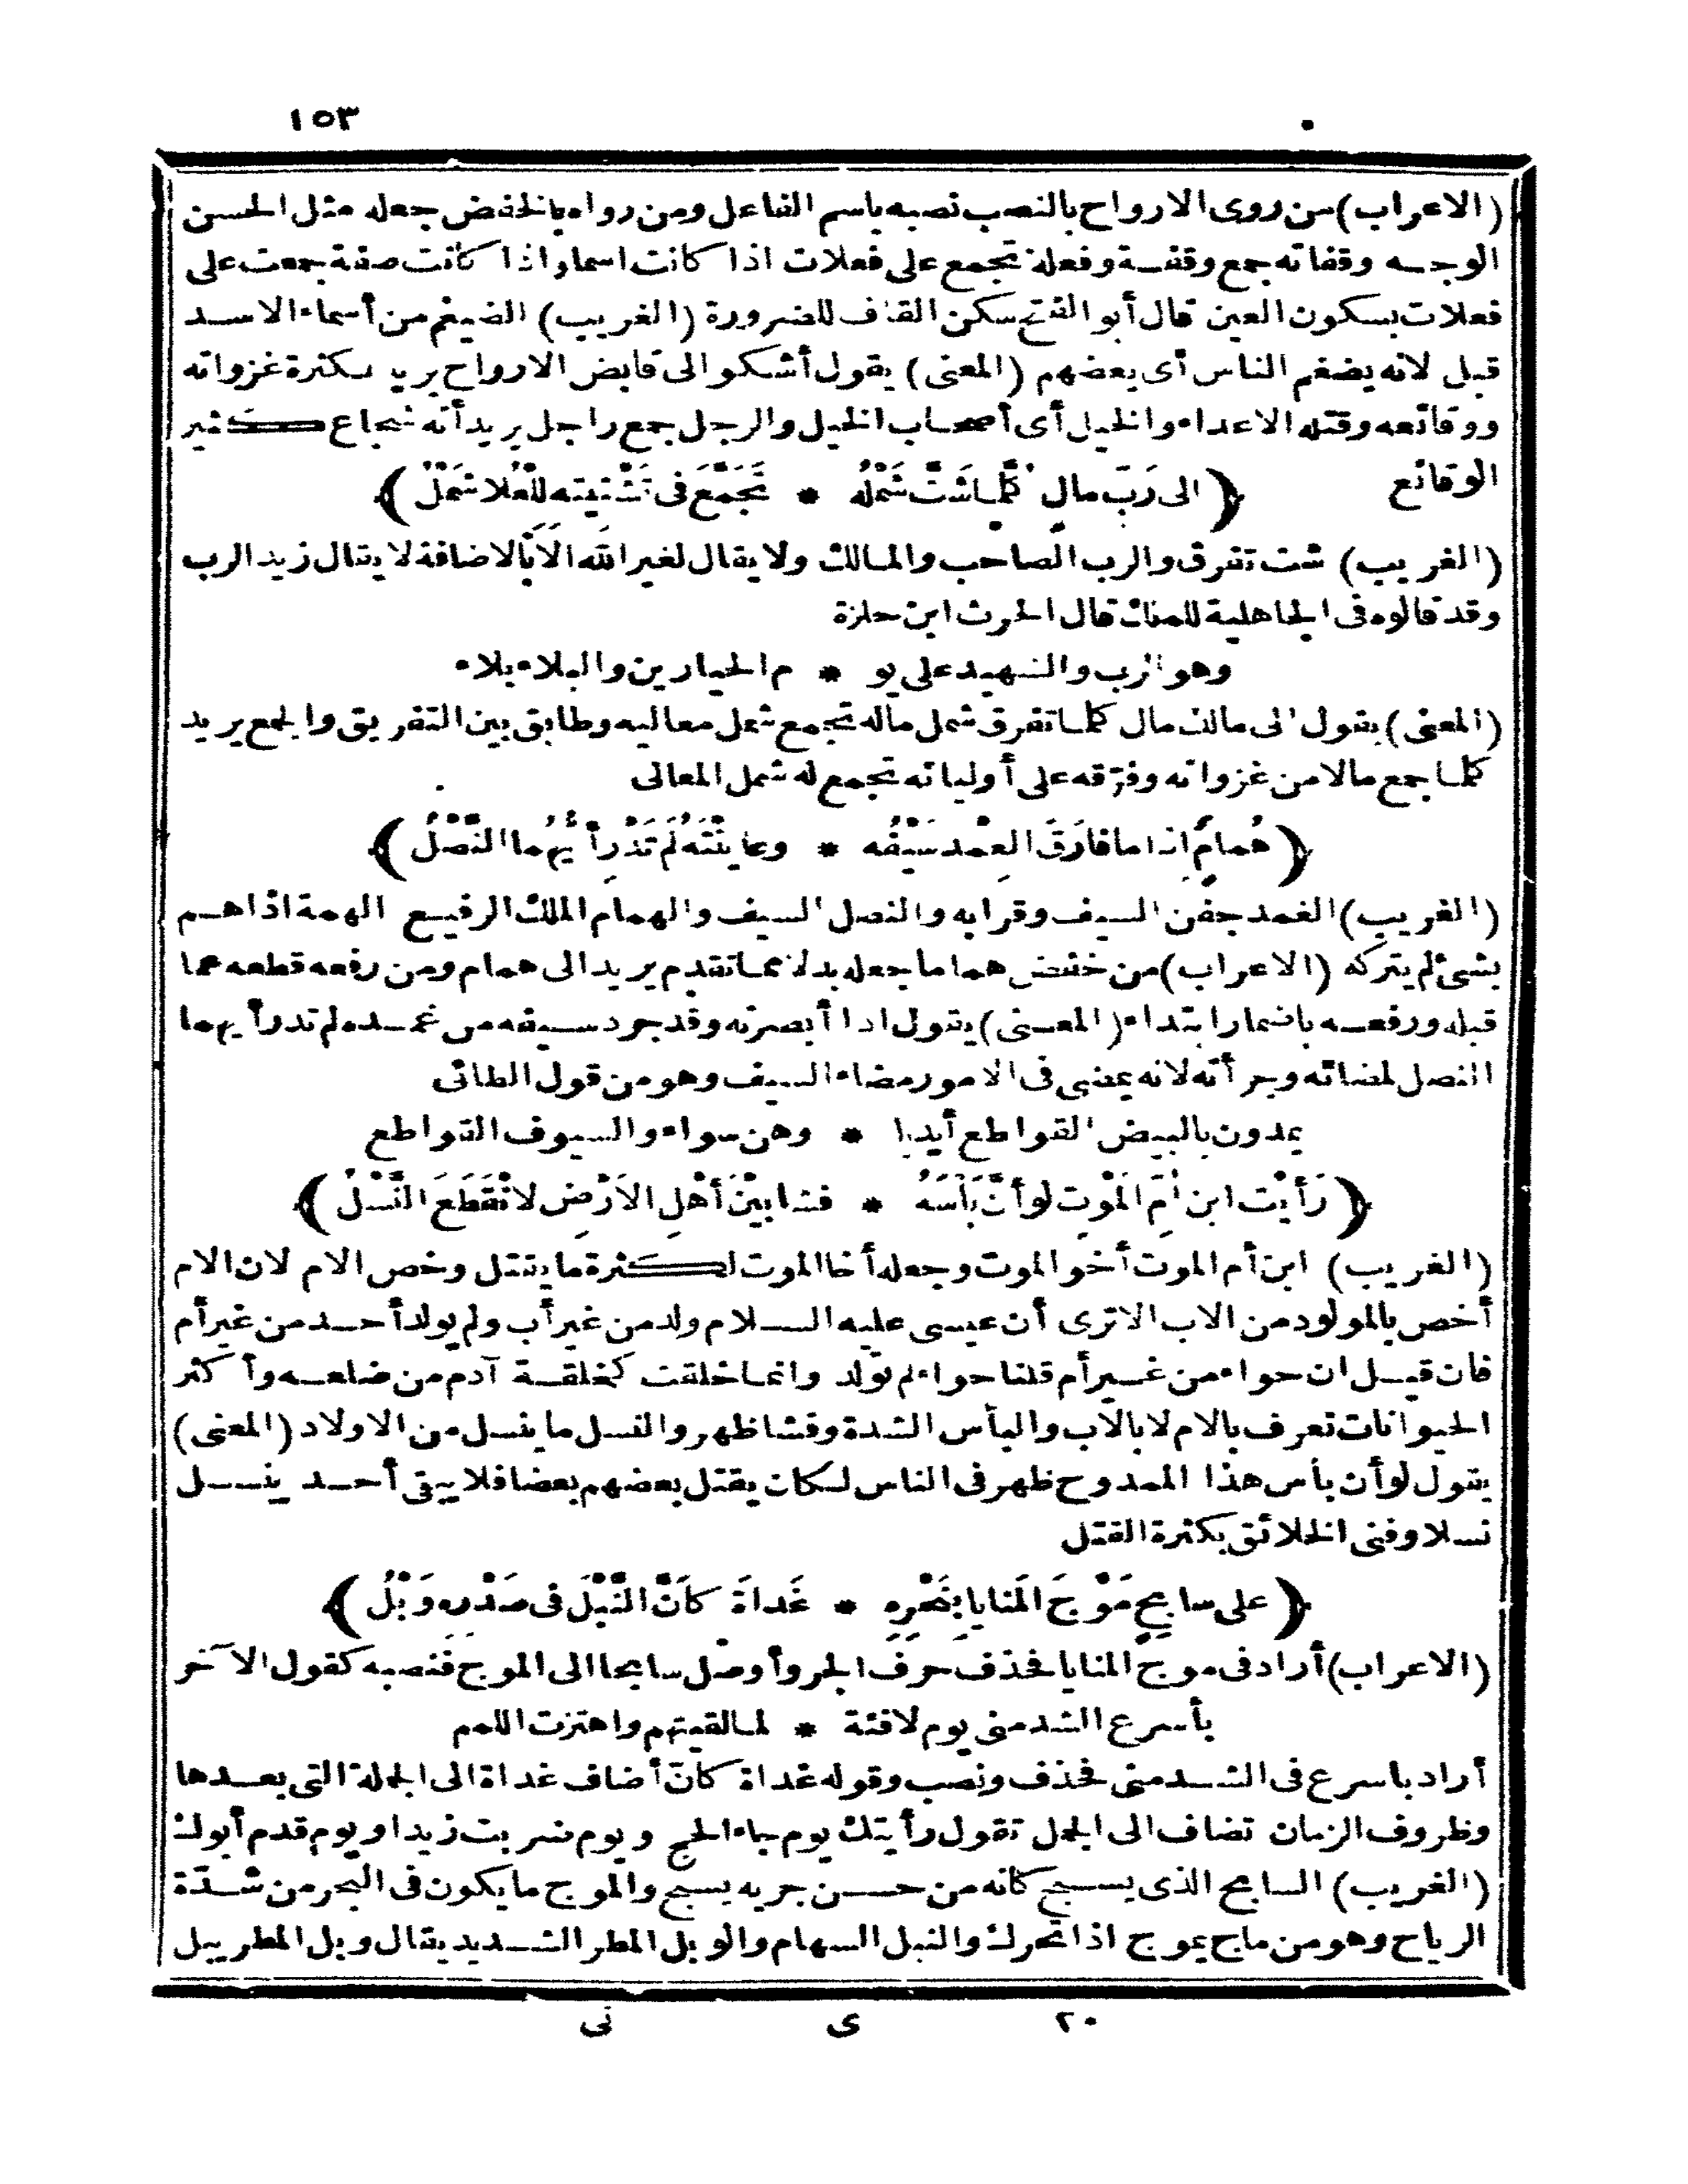 ١٥٣
(الاعراب) من روى الارواح بالنصب نصبه باسم الفاعل ومن رواه بالخفض جعله مثل الحسن
الوجه وقفاته جمع وقفة وفعلة تجمع على فعلات اذا كانت اسما واذا كانت صفة جمعت على
فعلات بسكون العين قال أبو الفتح سكن القاف للضرورة (الغريب) الضيغم من أسماء الاسد
قيل لانه يضغم الناس أى يعضهم (المعنى) يقول أشكو الى قابض الارواح يريد بكثرة غزواته
ووقائعه وقتله الاعداء والخيل أى أصحاب الخيل والرجل جمع راجل يريد أنه شجاع كثير
الوقائع ﴿الى رَبّ مالٍ كُلَّما شَتَّ شَمْلُه * تَجَمَّعَ فى تَشْتيته للْعُلا شَمْلُ﴾
(الغريب) شت تفرق والرب الصاحب والمالك ولا يقال لغير الله الا بالاضافة لا يقال زيد الرب
وقد قالوه فى الجاهلية للملك قال الحرث ابن حلزة
وهو الرب والشهيد على يو * م الحيارين والبلاء بلاء
(المعنى) يقول الى مالك مال كلما تفرق شمل ماله تجمع شمل معاليه وطابق بين التفريق والجمع يريد
كلما جمع مالا من غزواته وفرّقه على أوليائه تجمع له شمل المعالى
﴿هُمامٌ اِذا ما فارَقَ الغِمْدَ سَيْفُه * وعاينْتَه لَم تَدْرِ أيُّهُما النَّصْلُ﴾
(الغريب) الغمد جفن السيف وقرابه والنصل السيف والهمام الملك الرفيع الهمة اذا هم
بشئ لم يتركه (الاعراب) من خفض هماما جعله بدلا مما تقدم يريد الى همام ومن رفعه قطعه مما
قبله ورفعه باضمار ابتداء (المعنى) يقول اذا أبصرته وقد جرد سيفه من غمده لم تدر أيهما
النصل لمضائه وجرأته لانه يمضى فى الامور مضاء السيف وهو من قول الطائى
يمدون بالبيض القواطع أيديا * وهن سواء والسيوف القواطع
﴿رَأيْت ابن اُمِّ المَوْتِ لو أنَّ بَأسَهُ * فشا بيْنَ أهْلِ الاَرْضِ لانْقَطَعَ النَّسْلُ﴾
(الغريب) ابن أم الموت أخو الموت وجعله أخا الموت لكثرة ما يقتل وخص الام لان الام
أخص بالمولود من الاب الا ترى أن عيسى عليه السلام ولد من غير أب ولم يولد أحد من غير أم
فان قيل ان حواء من غير أم قلنا حواء لم تولد وانما خلقت كخلقة آدم من ضلعه وأكثر
الحيوانات تعرف بالام لا بالاب والبأس الشدة وفشا ظهر والنسل ما ينسل من الاولاد (المعنى)
يقول لو أن بأس هذا الممدوح ظهر فى الناس لكان يقتل بعضهم بعضا فلا يبقى أحد ينسل
نسلا وفنى الخلائق بكثرة القتل
﴿على سابِحٍ مَوْجَ المَنايا بِنَحْرِهِ * غَداةَ كأنَّ النَّبْلَ فى صَدْرِه وَبْلُ﴾
(الاعراب) أراد فى موج المنايا فحذف حرف الجر وأوصل سابحا الى الموج فنصبه كقول الآخر
بأسرع الشد منى يوم لاقئة * لما لقيتهم واهتزت اللمم
أراد باسرع فى الشد منى فحذف ونصب وقوله غداة كأنّ أضاف غداة الى الجملة التى بعدها
وظروف الزمان تضاف الى الجمل تقول رأيتك يوم جاء الحج ويوم ضربت زيدا ويوم قدم أبوك
(الغريب) السابح الذى يسبح كانه من حسن جريه يسبح والموج ما يكون فى البحر من شدّة
الرياح وهو من ماج يموج اذا تحرك والنبل السهام والوبل المطر الشديد يقال وبل المطر يبل
٢٠ ى نى